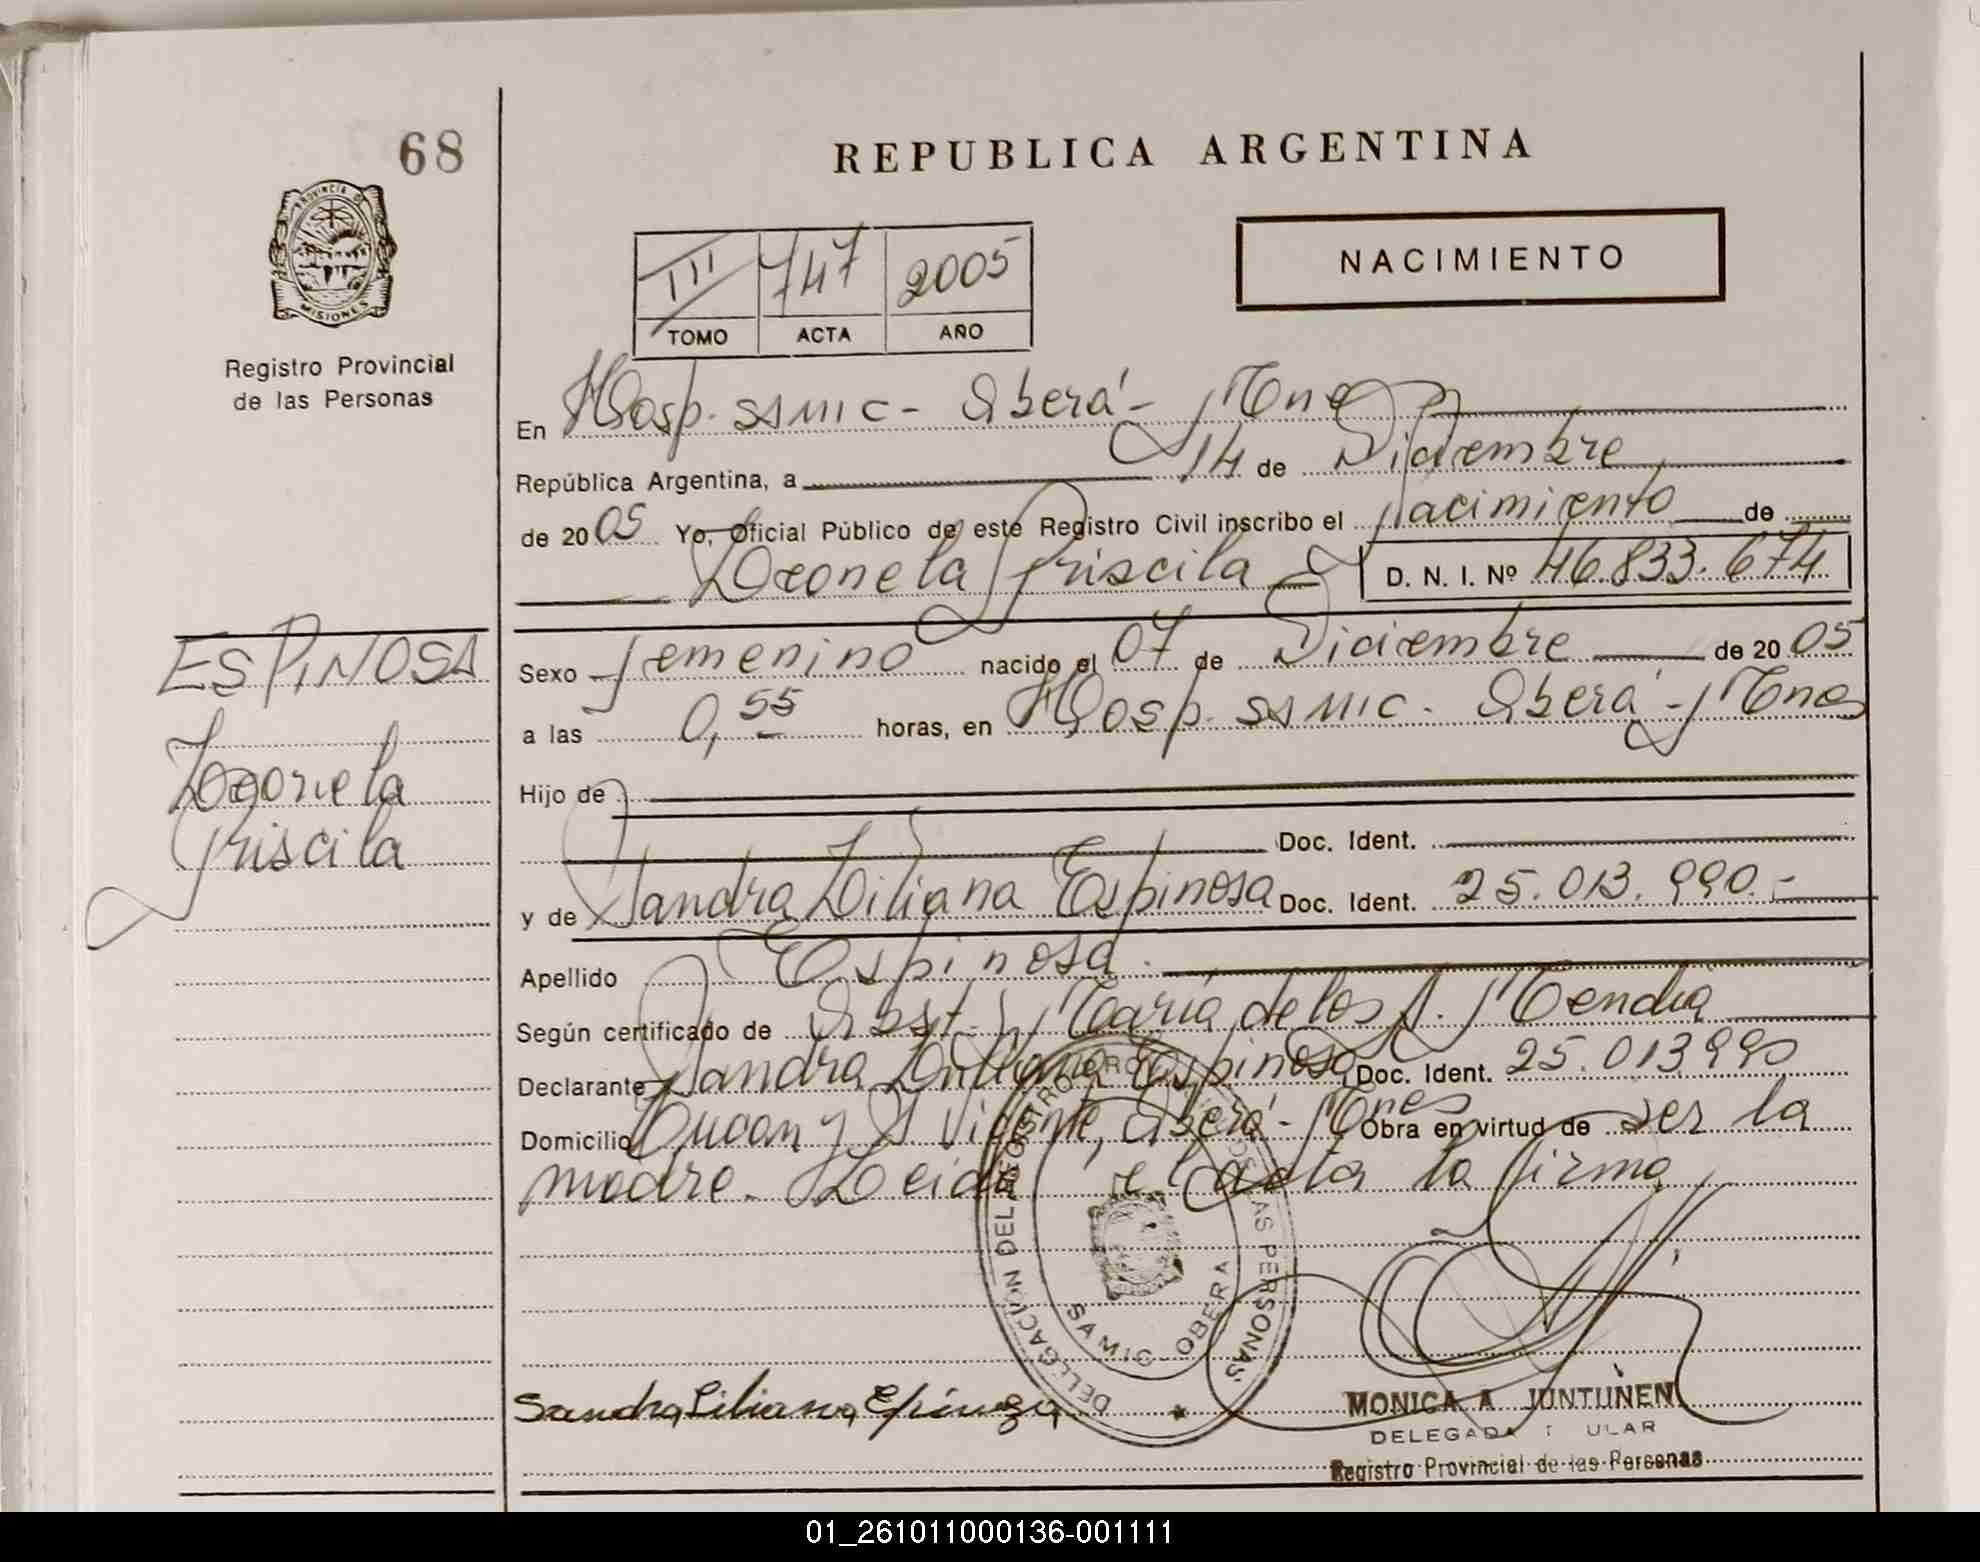 68
REPUBLICA ARGENTINA
PROVINCIA DE
MISIONES
Registro Provincial
de las Personas
III 747 2005
TOMO ACTA AÑO
NACIMIENTO
En Hosp. SAMIC - Oberá - Mnes
República Argentina, a 14 de Diciembre
de 2005 Yo, Oficial Público de este Registro Civil inscribo el Nacimiento de
Leonela Priscila D. N. I. Nº 46.833.674
ESPINOSA
Leonela
Priscila
Sexo femenino nacido el 07 de Diciembre de 2005
a las 0,55 horas, en Hosp. SAMIC. Oberá - Mnes
Hijo de
Doc. Ident.
y de Sandra Liliana Espinosa Doc. Ident. 25.013.990.-
Apellido Espinosa.
Según certificado de Obst. María de los A. Mendia
Declarante Sandra Liliana Espinosa Doc. Ident. 25.013990
Domicilio y S Vicente, Oberá - Mnes Obra en virtud de ser la
madre. Leida el acta la firma
DELEGACION DEL REGISTRO PROVINCIAL DE LAS PERSONAS
SAMIC OBERA
Sandra Liliana Espinoza
MONICA A. JUNTUNEN
DELEGADA TITULAR
Registro Provincial de las Personas
01_261011000136-001111